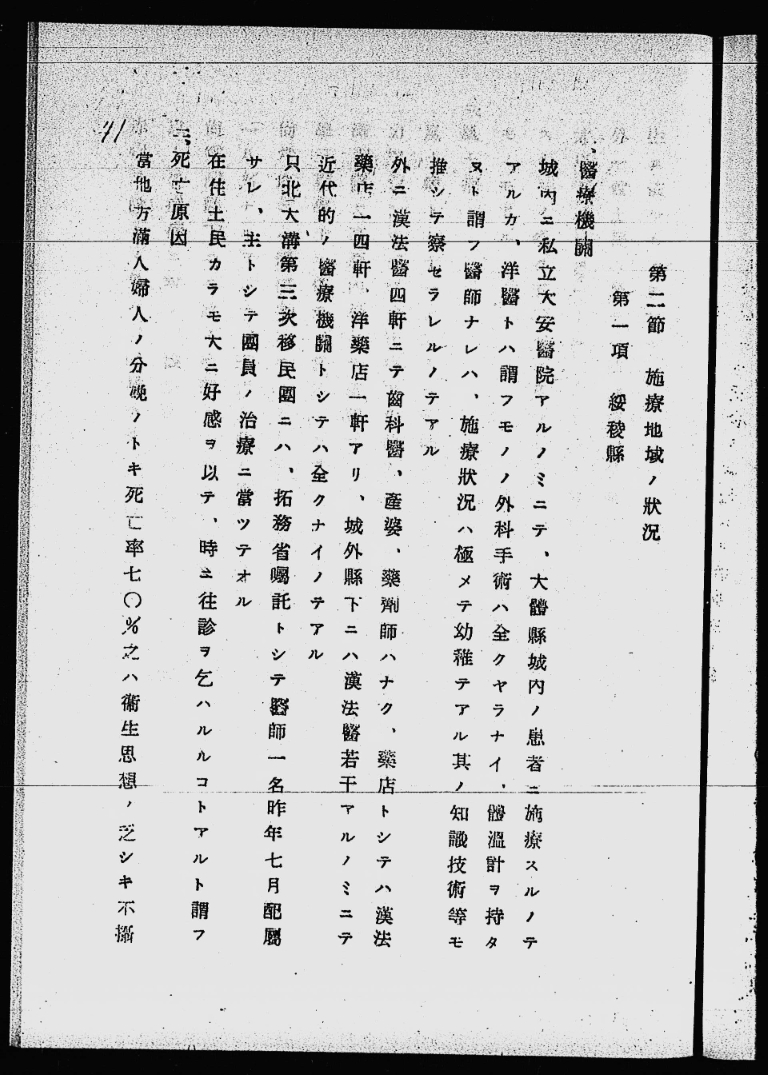 第二節 施療地域ノ狀況
第一項 綏稜縣
、醫療機關
城內ニ私立大安醫院アルノミニテ、大體縣城內ノ患者ニ施療スルノテ
アルカ、洋醫トハ謂フモノノ外科手術ハ全クヤラナイ、體溫計ヲ持タ
ヌト謂フ醫師ナレハ、施療狀況ハ極メテ幼稚テアル其ノ知識技術等モ
推シテ察セラレルノテアル
外ニ漢法醫四軒ニテ齒科醫、產婆、藥劑師ハナク、藥店トシテハ漢法
藥店一四軒、洋藥店一軒アリ、城外縣下ニハ漢法醫若干アルノミニテ
近代的ノ醫療機關トシテハ全クナイノテアル
只北大溝第三次移民團ニハ、拓務省囑託トシテ醫師一名昨年七月配屬
サレ、主トシテ團員ノ治療ニ當ツテオル
在住土民カラモ大ニ好感ヲ以テ、時ニ往診ヲ乞ハルルコトアルト謂フ
二、死亡原因
當地方滿人婦人ノ分娩ノトキ死亡率七〇％之ハ衞生思想ノ乏シキ不攝
41